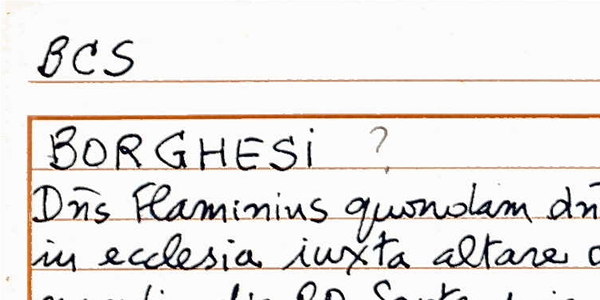 BCS
BORGHESI ?
Dn̄s Flaminius quondam dn̄
in ecclesia iuxta altare